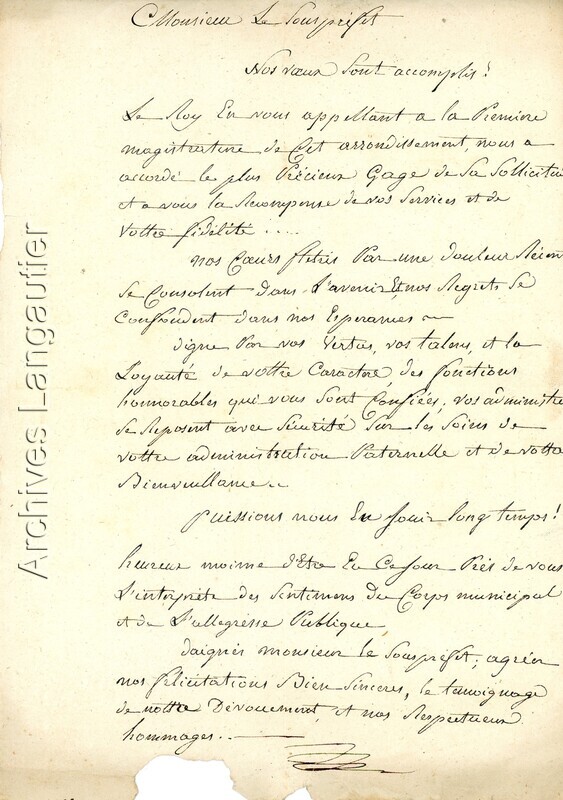 Monsieur Le Sousprefet
Nos vœux Sont accomplis!
Le Roy En vous appellant a la Premiere
magistrature de Cet arrondissement, nous a
accordé le plus Précieux Gage de Sa Sollicitu
et a vous la Recompense de vos Services et de
Votre fidélité ....
nos Cœurs fletris Par une douleur Récen
Se Consolent Dans L'avenir Et nos Regrets Se
Confondent dans nos Esperances ~
digne Par vos Vertus, vos talens, et la
Loyauté de votre Caractere des fonctions
honorables qui vous Sont Confiées; vos administre
Se Reposent avec Sécurité Sur les Soins de
votre administration Paternelle et de votre
Bienveuillance ..
Puissions nous En Jouir long temps!
heureux moime d'Etre En Ce Jour Près de vous
L'interprete des Sentimens du Corps municipal
et de L'allegresse Publique,
daignés monsieur le Sousprefet, agréer
nos felicitations Bien Sinceres, le temoignage
de notre Dévouement, et nos Respectueux
hommages . . —
Archives Langautier